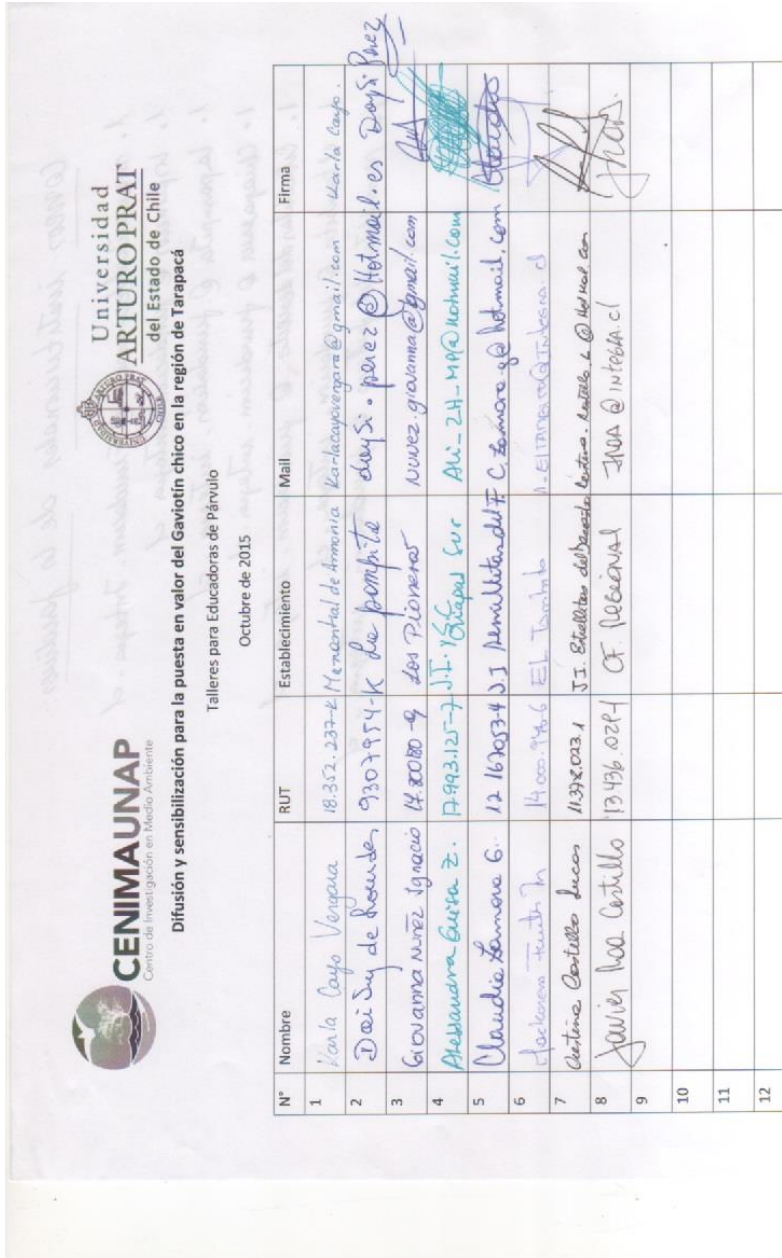 CENIMAUNAP
Centro de Investigación en Medio Ambiente
Universidad
ARTURO PRAT
del Estado de Chile
Difusión y sensibilización para la puesta en valor del Gaviotín chico en la región de Tarapacá
Talleres para Educadoras de Párvulo
Octubre de 2015
N° Nombre RUT Establecimiento Mail Firma
1 Karla Cayo Vergara 18.352.237-K Manantial de Armonía Karlacayovergara@gmail.com Karla Cayo.
2 Dai Suy de Lourdes 9307954-K La pampita daysi.perez@Hotmail.es Daysi Perez
3 Giovanna Nuñez Ignacio Los Pioneros Nunez.giovanna@gmail.com
4 Alessandra Guisa Z. 17.993.125-7 J.I. Sur Ali_24_MP@hotmail.com
5 Claudia Zamora G. 12 167053-4 J.I Semillitas del F. C.Zamora.g@hotmail.com Claudia
6 14.000.976-6 EL Tambo
7 Cristina Castillo Lucas 11.378.023.1 J.I. Estrellitas del
8 Javier Roa Castillo 13436.029-1 CF. REGIONAL JROA@INTEGRA.cl
9
10
11
12